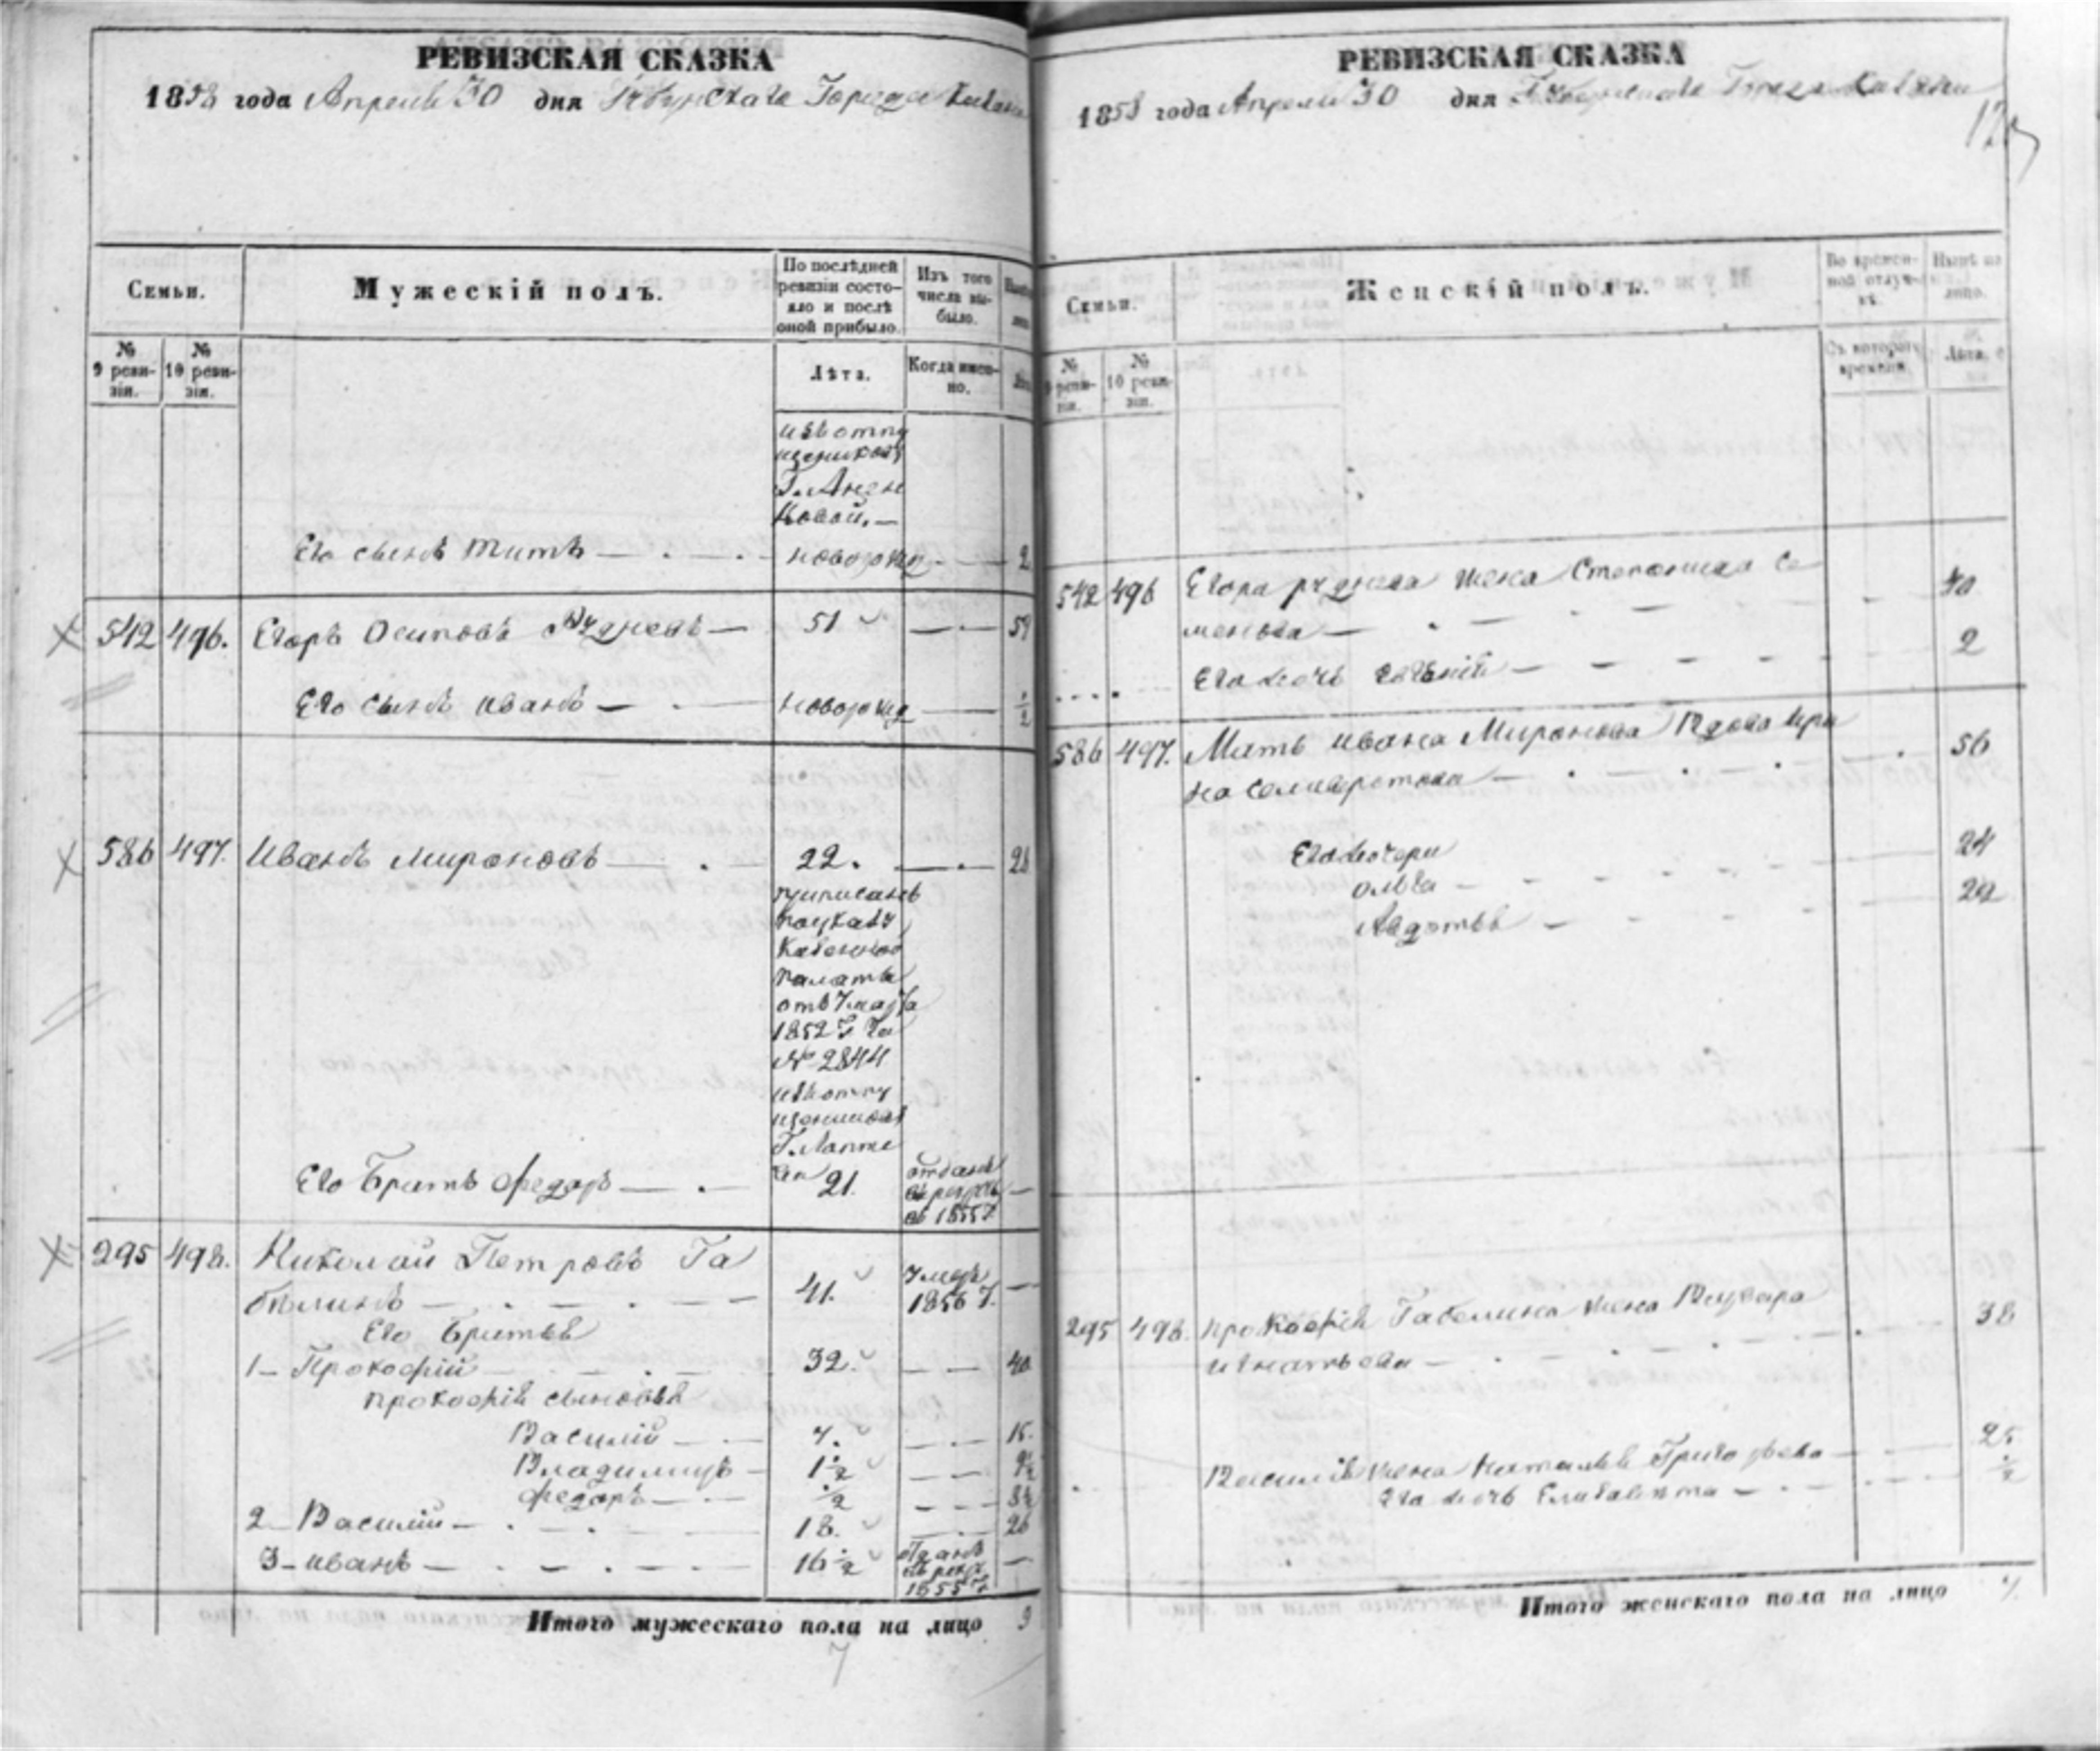 РЕВИЗСКАЯ СКАЗКА
1858 года Апреля 30 дня Города Казани
Семьи.
Мужескій полъ.
По послѣдней ревизіи состояло и послѣ оной прибыло.
Изъ того числа выбыло.
№ 9 ревизіи.
№ 10 ревизіи.
Лѣта.
Когда именно.
изъ отпу
щенниковъ
Г. Анен
ковой. —
Его сынъ Титъ — новорожд — 2
542 496. Егоръ Осиповъ Рудневъ — 51 — 59
Его сынъ Иванъ — новорожд — ½
586 497. Иванъ Мироновъ — 22. — 28
приписанъ
по указу
Казенной
палаты
отъ 7 марта
1852 г за
№ 2844
изъ отпу
щенниковъ
Г. Лапте
ва
Его Братъ Федоръ — 21.
отданъ
въ рекруты
въ 1855 г
295 498. Николай Петровъ Га
белинъ — 41. умеръ 1856 г. —
Его Братья
1 – Прокофій — 32. — 40
Прокофія сыновья
Василій — 7. — 15.
Владимиръ — 1½ — 9½
Федоръ — ½ — 8½
2 – Василій — 18. — 26
3 – Иванъ — 16½ отданъ въ рекр 1855 г —
Итого мужескаго пола на лицо 9
7
РЕВИЗСКАЯ СКАЗКА
1858 года Апреля 30 дня Города Казани
Семьи.
Женскій полъ.
Во временной отлучкѣ.
Нынѣ на лицо.
№ 9 ревизіи.
№ 10 ревизіи.
Съ котораго времени.
Лѣта.
542 496 Егора Руднева жена Степанида Се
менова — 40
Его дочь — 2
586 497. Мать Ивана Миронова Вдова Ири
на Селиверстова — 56
Его дочери
Ольга — 24
Авдотья — 22
295 498. Прокофія Габелина жена
Игнатьева — 38
Василія жена Наталья Григорьева — 25
Его дочь Елизавета — ½
Итого женскаго пола на лицо 7